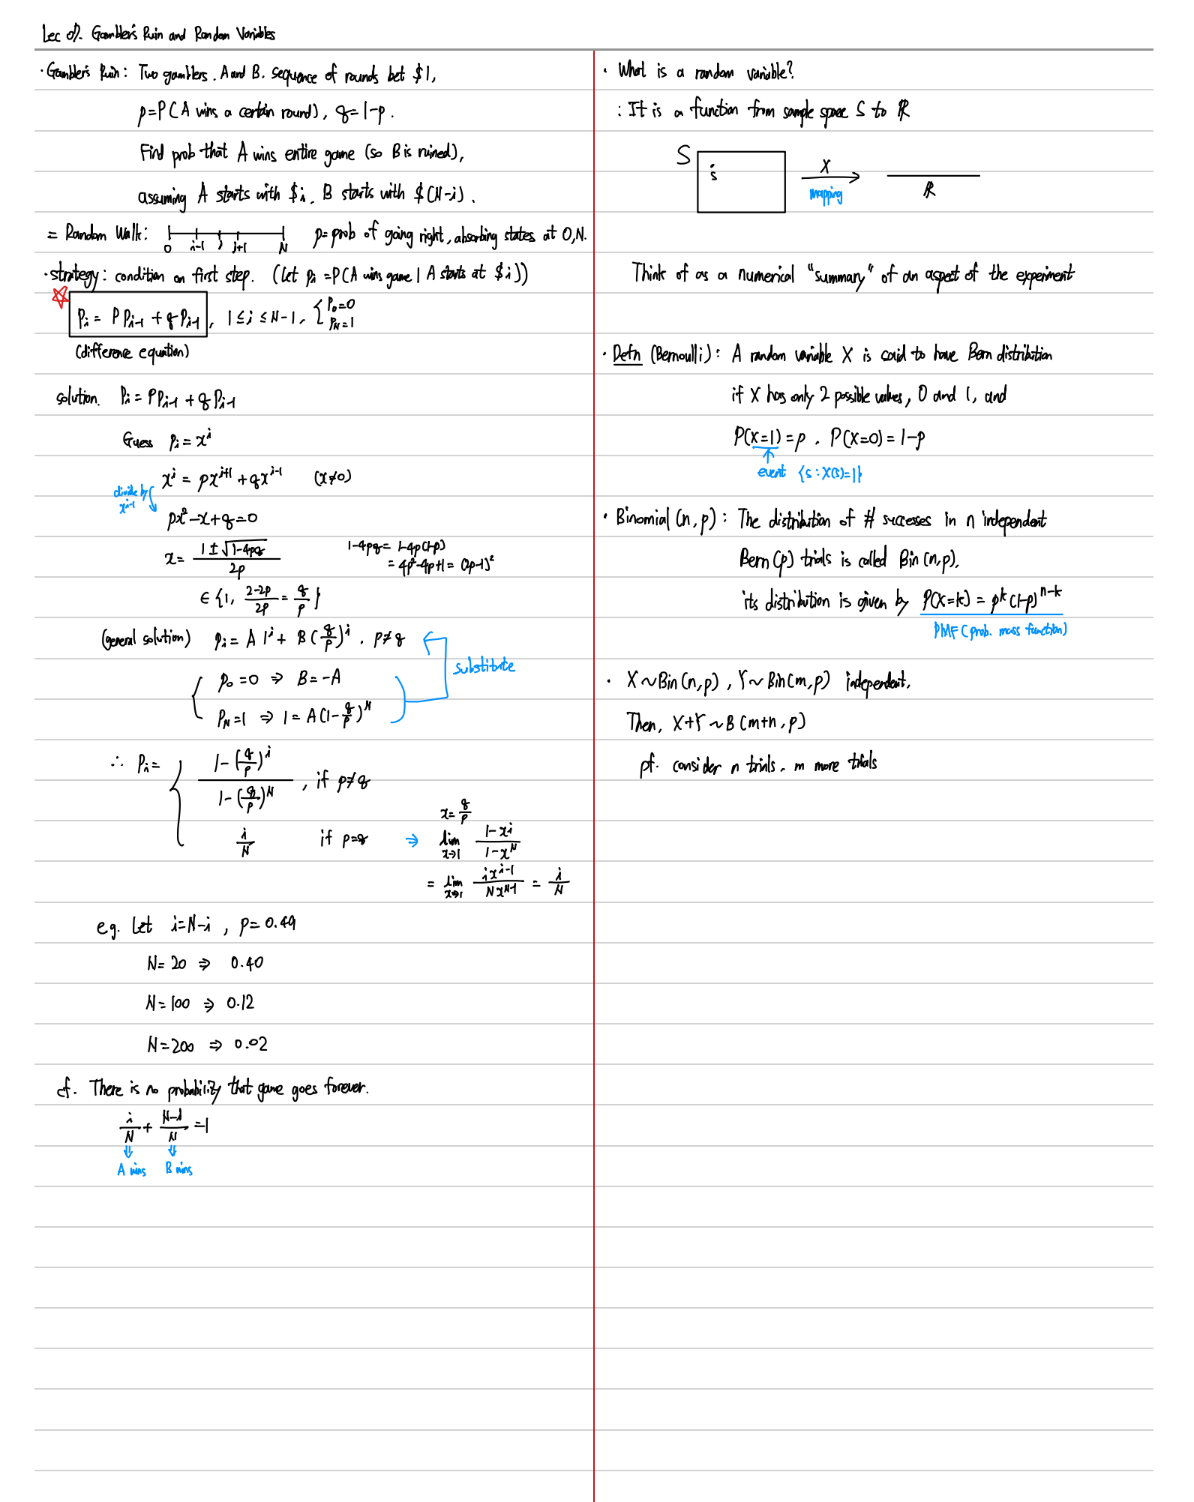 Lec 07. Gambler's Ruin and Random Variables
· Gambler's Ruin : Two gamblers. A and B. sequence of rounds bet $1,
p=P(A wins a certain round), q=1-p.
Find prob that A wins entire game (so B is ruined),
assuming A starts with $i, B starts with $(N-i).
= Random Walk: 0 i-1 i i+1 N p=prob of going right, absorbing states at 0,N.
· strategy : condition on first step. (let Pi =P(A wins game | A starts at $i))
☆ Pi = P Pi-1 + q Pi-1, 1≤i≤N-1, { P0=0
PN=1
(difference equation)
solution. Pi = P Pi-1 + q Pi-1
Guess Pi = x^i
x^i = px^(i+1) + qx^(i-1) (x≠0)
divide by x^(i-1)
px²-x+q=0
x = (1±√(1-4pq))/2p
1-4pq = 1-4p(1-p)
= 4p²-4p+1 = (2p-1)²
∈ {1, (2-2p)/2p = q/p}
(general solution) Pi = A 1^i + B(q/p)^i, p≠q
substitute
P0=0 ⇒ B=-A
PN=1 ⇒ 1=A(1-q/p)^N
∴ Pi = { (1-(q/p)^i)/(1-(q/p)^N), if p≠q
i/N if p=q ⇒ x=q/p lim x→1 (1-x^i)/(1-x^N)
= lim x→1 (ix^(i-1))/(Nx^(N-1)) = i/N
e.g. Let i=N-i, p=0.49
N=20 ⇒ 0.40
N=100 ⇒ 0.12
N=200 ⇒ 0.02
cf. There is no probability that game goes forever.
i/N + (N-i)/N = 1
A wins B wins
· What is a random variable?
: It is a function from sample space S to ℝ
S s X mapping ℝ
Think of as a numerical "summary" of an aspect of the experiment
· Defn (Bernoulli) : A random variable X is said to have Bern distribution
if X has only 2 possible values, 0 and 1, and
P(X=1)=p, P(X=0)=1-p
event {s : X(s)=1}
· Binomial (n, p) : The distribution of # successes in n independent
Bern(p) trials is called Bin(n,p),
its distribution is given by P(X=k) = p^k(1-p)^(n-k)
PMF (prob. mass function)
· X~Bin(n,p), Y~Bin(m,p) independent,
Then, X+Y~B(m+n, p)
pf. consider n trials. m more trials